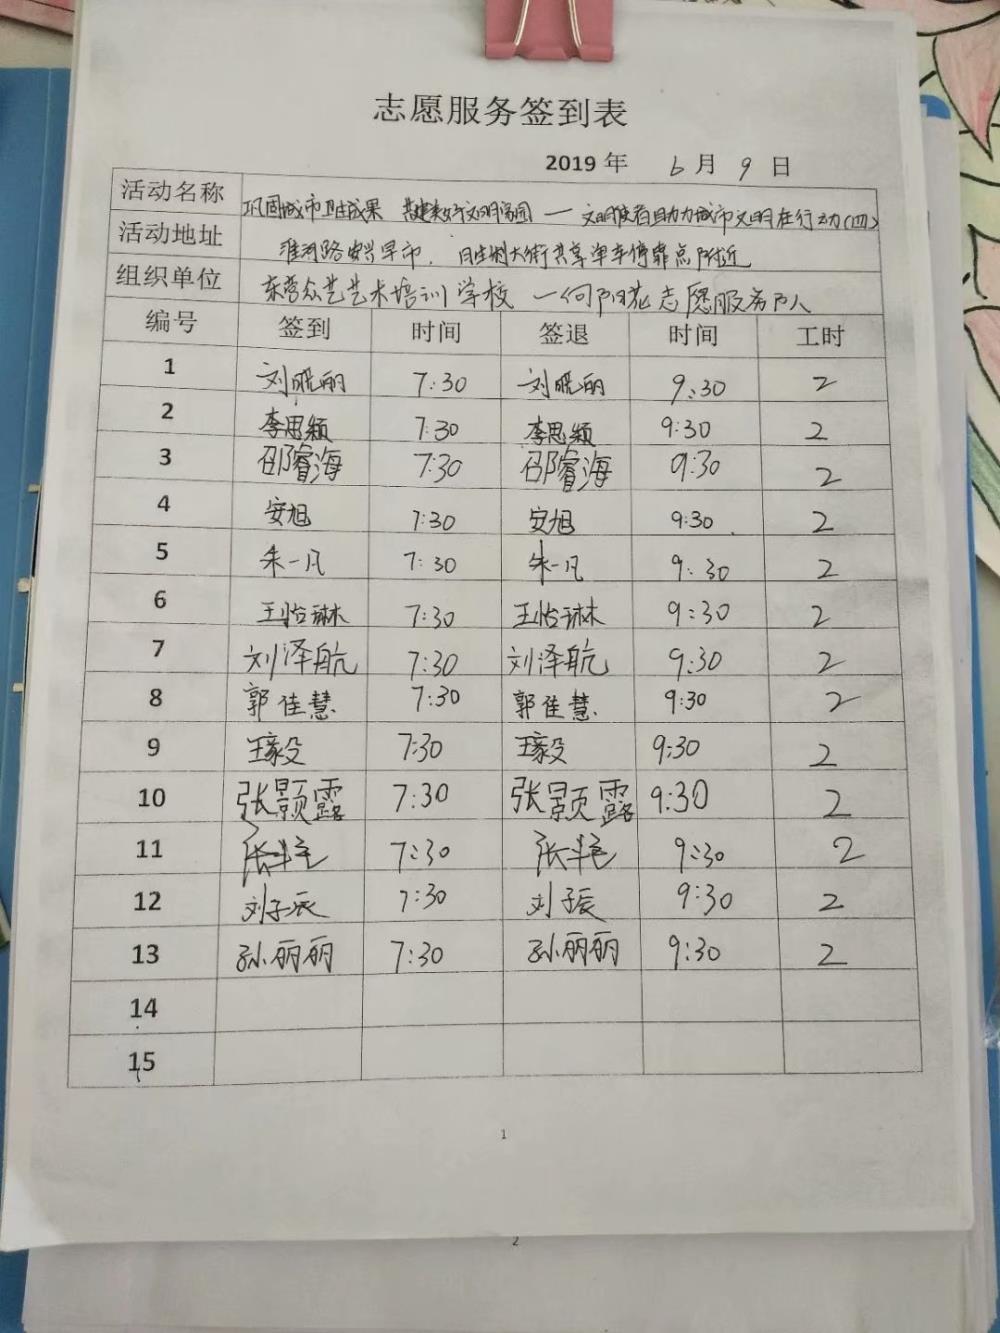 志愿服务签到表
2019 年 6 月 9 日
活动名称 巩固城市卫生成果 共建美好文明家园 — 文明使者助力城市文明在行动(四)
活动地址 淮河路安兴早市、 大街共享单车停靠点附近
组织单位 东营众艺艺术培训学校 — 向阳花志愿服务队
编号 签到 时间 签退 时间 工时
1 刘晓丽 7:30 刘晓丽 9:30 2
2 李思颖 7:30 李思颖 9:30 2
3 邵睿海 7:30 邵睿海 9:30 2
4 安旭 7:30 安旭 9:30 2
5 朱一凡 7:30 朱一凡 9:30 2
6 王怡琳 7:30 王怡琳 9:30 2
7 刘泽航 7:30 刘泽航 9:30 2
8 郭佳慧 7:30 郭佳慧 9:30 2
9 7:30 9:30 2
10 张颢露 7:30 张颢露 9:30 2
11 7:30 9:30 2
12 刘子辰 7:30 刘子辰 9:30 2
13 孙丽丽 7:30 孙丽丽 9:30 2
14
15
1
2